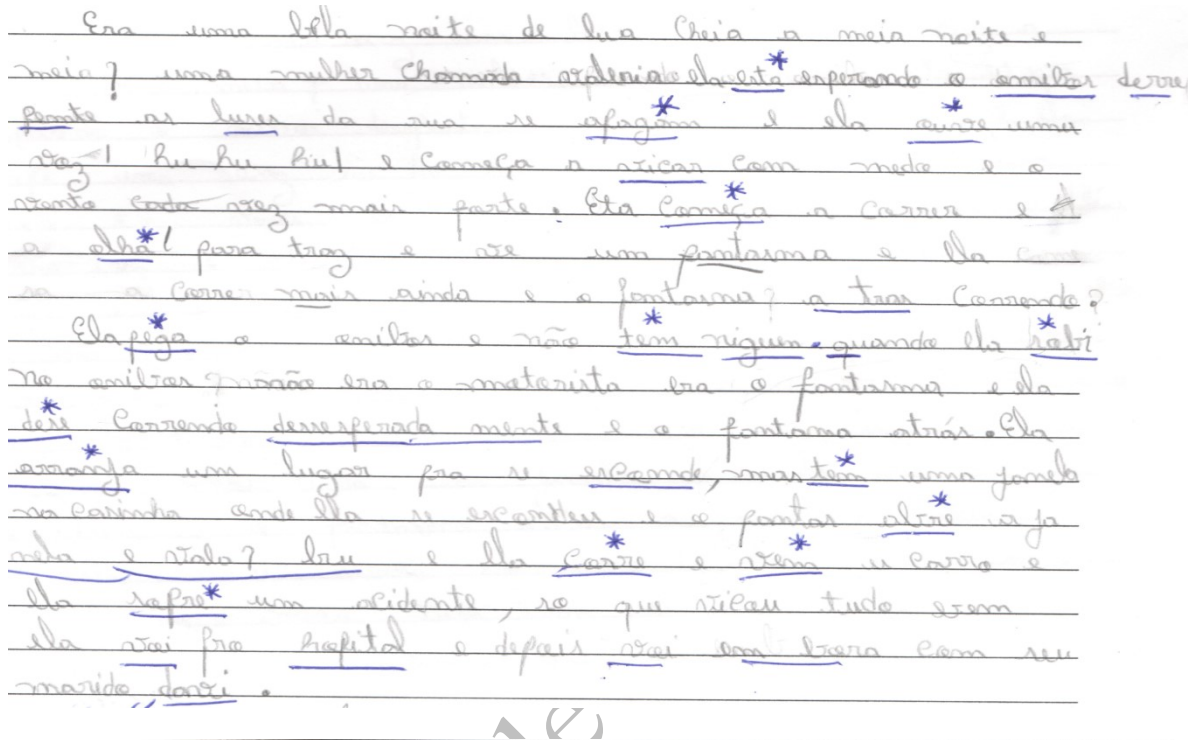 Era uma bela noite de lua Cheia a meia noite e
meia? uma mulher Chamada valenia ela está esperando o onibos derre
pente as luses da rua se apagam e ela ouvre uma
voz! hu hu hiu! e Começa a vicar Com medo e o
vento cada vez mais forte. Ela Começa a Correr e
a olha! para traz e ve um fantasma e Ela
a Corre mais ainda e o fantasma? a tras Correndo?
Ela pega o onibos e não tem niguen. quando ela sobi
no onibos? não era o motorista era o fantasma e ela
dese Correndo desesperada mente e o fantama atrás. Ela
arranja um lugar pra se esConde, mas tem uma janela
na Casinha onde Ela se escondeu e o fantas abre a ja
nela e vala? bru e Ela Corre e vem u Carro e
Ela sofre um acidente, so que vicou tudo vem
ela vai pro hospital e depois vai em bora Com seu
marido davi.